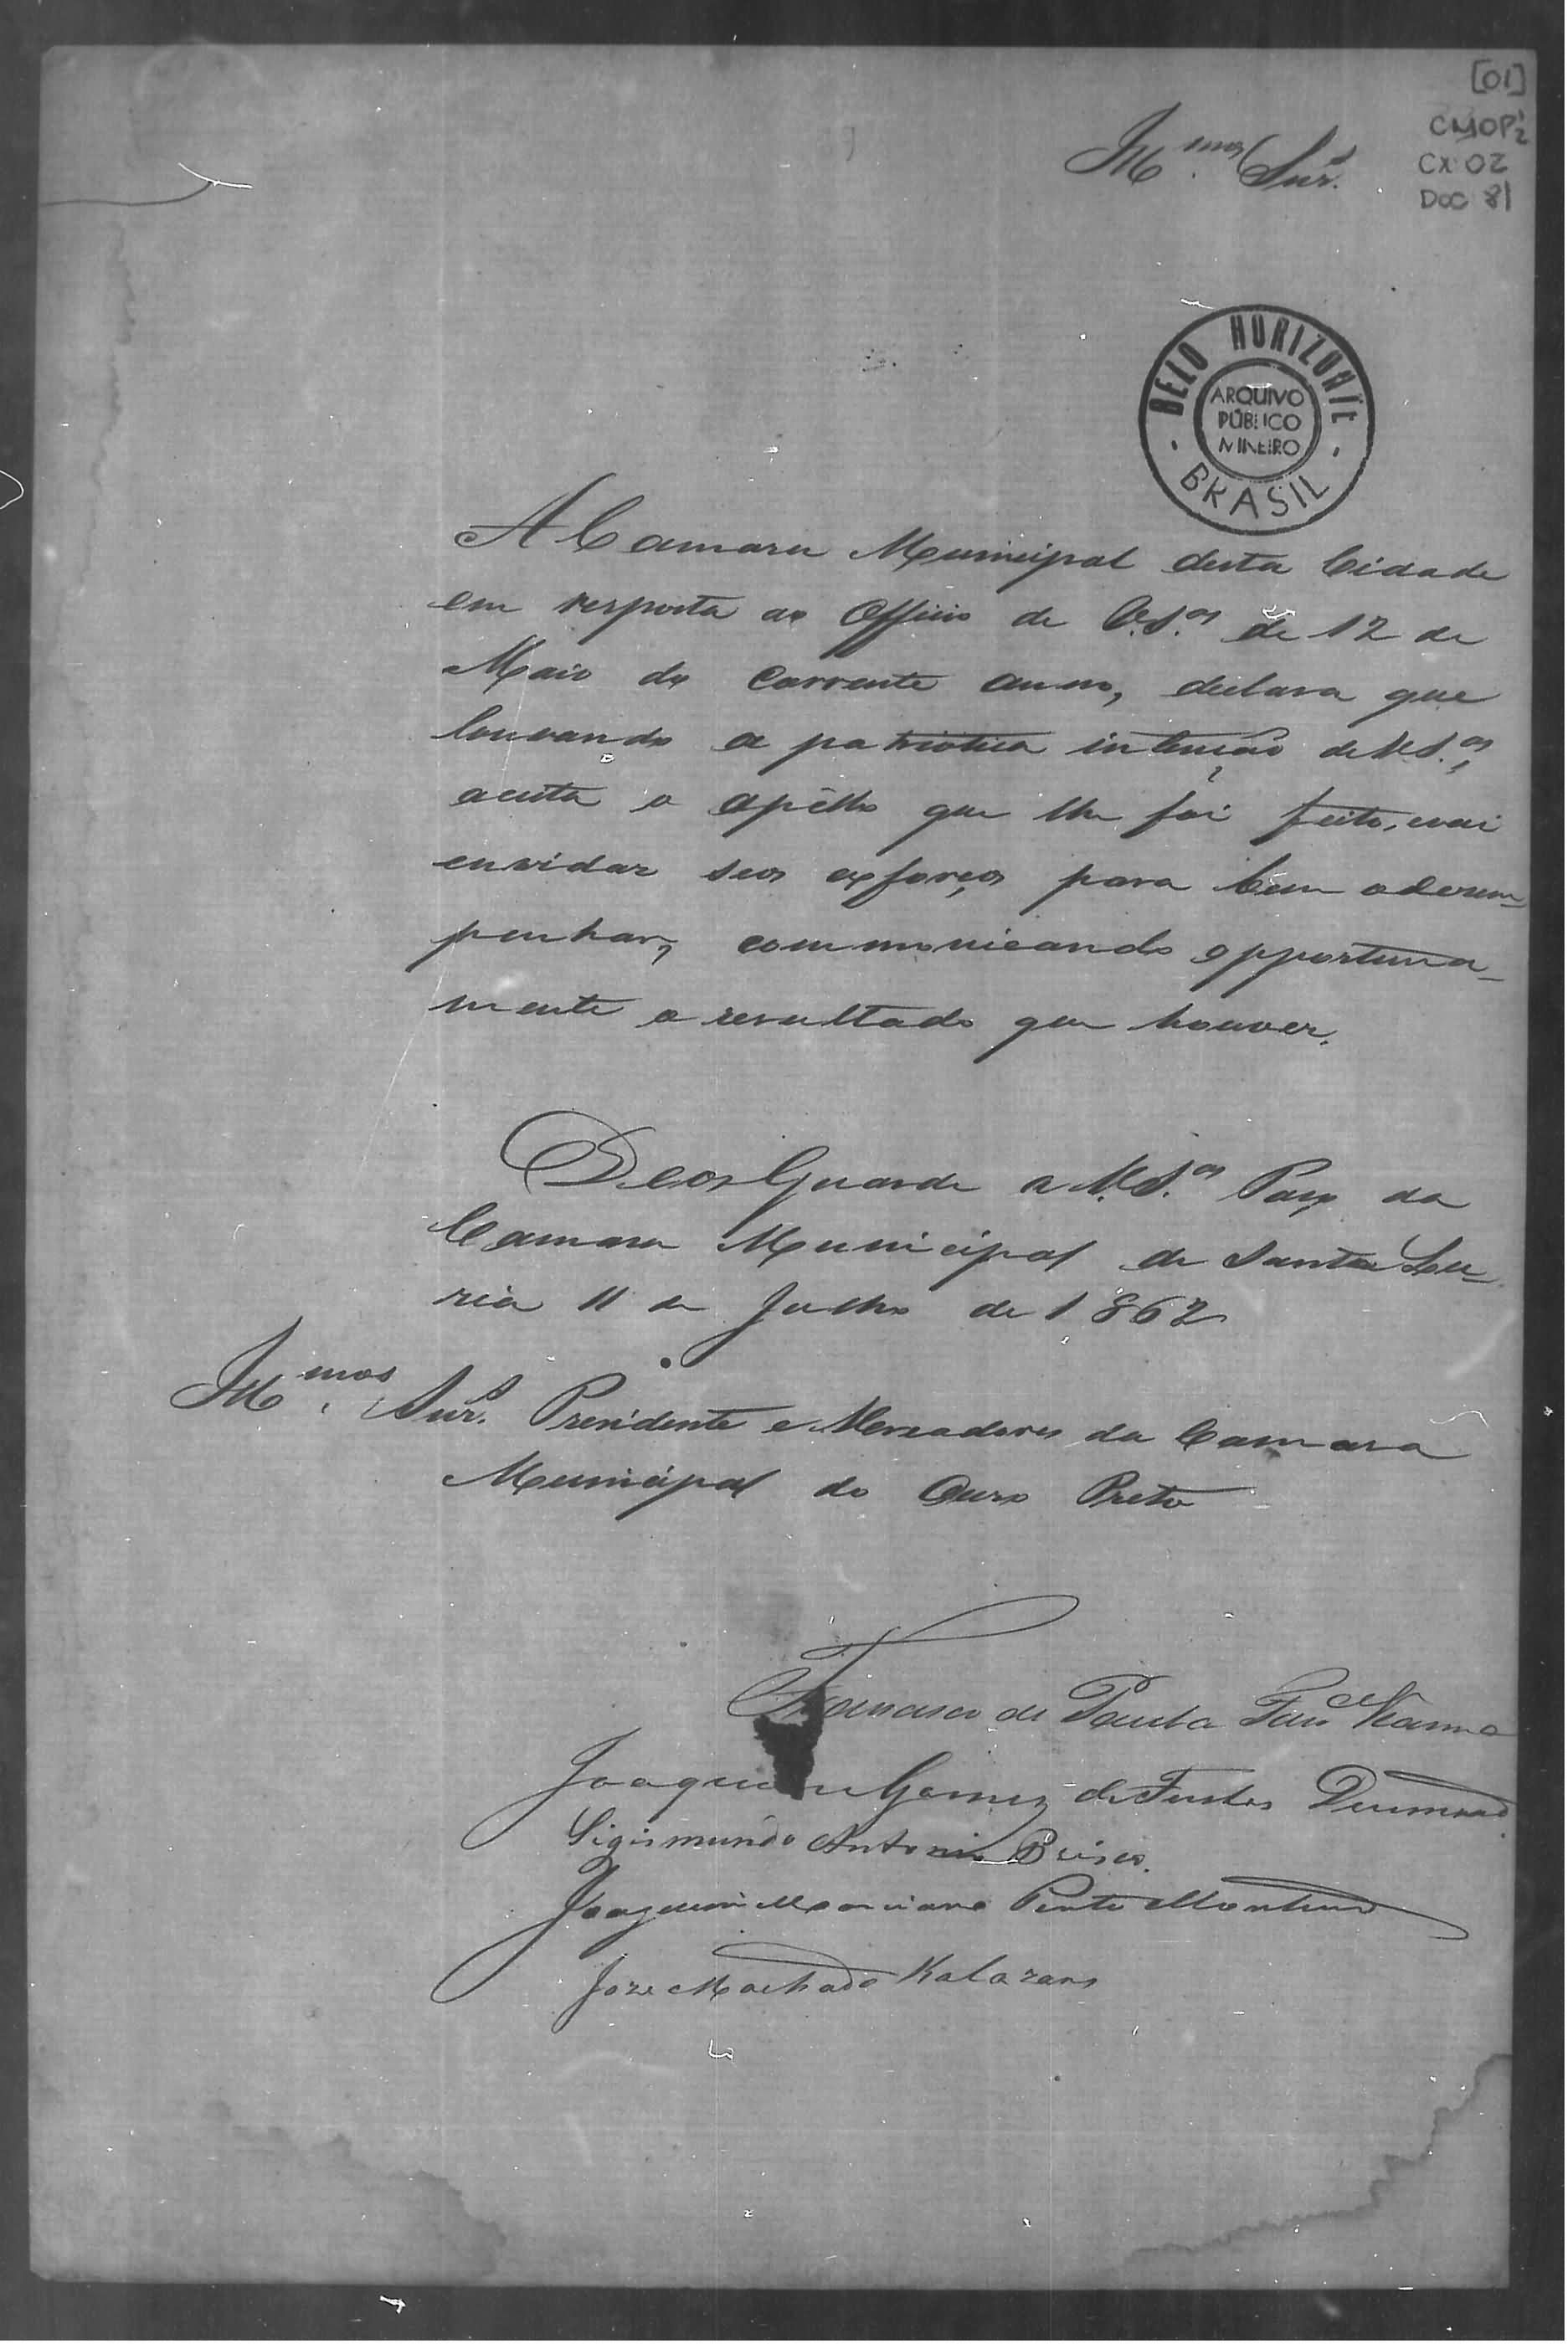 [01]
CMOP 1/2
CX 02
DOC 81
Ill.mos Snr.s
BELO HORIZONTE
ARQUIVO
PÚBLICO
MINEIRO
BRASIL
A Camara Municipal desta Cidade
em resposta ao Officio de V.S.as de 12 de
Maio do corrente anno, declara que
louvando a patriotica intenção de V.S.as,
aceita o apêllo que lhe foi feito, e vai
envidar seos exforços para bem o desem-
penhar, communicando opportuna-
mente o resultado que houver.
Deos Guarde a V.S.as Paço da
Camara Municipal de Santa Lu-
zia 11 de Julho de 1862
Ill.mos Snr.s Presidente e Vereadores da Camara
Municipal do Ouro Preto
Francisco de Paula Vianna
Joaquim Gomez de Freitas Drumond
Sigismundo Antonio
Joaquim Marciano Pinto Monteiro
Joze Machado Kalazans